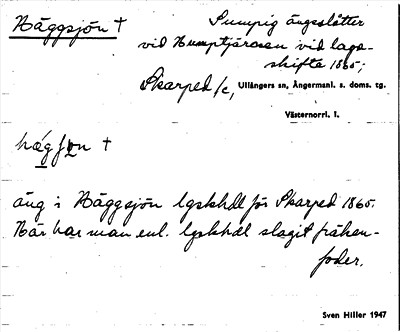 Häggsjön †
Sumpig ängsslåtter
vid Humptjärnen vid laga-
skifte 1865;
Skarped /c, Ullångers sn, Ångermanl. s. doms. tg.
Västernorrl. l.
hǽgʃɷn †
äng i Häggsjön lgskhdl för Skarped 1865.
Här har man enl. lgskhdl slagit fräken-
foder.
Sven Hiller 1947